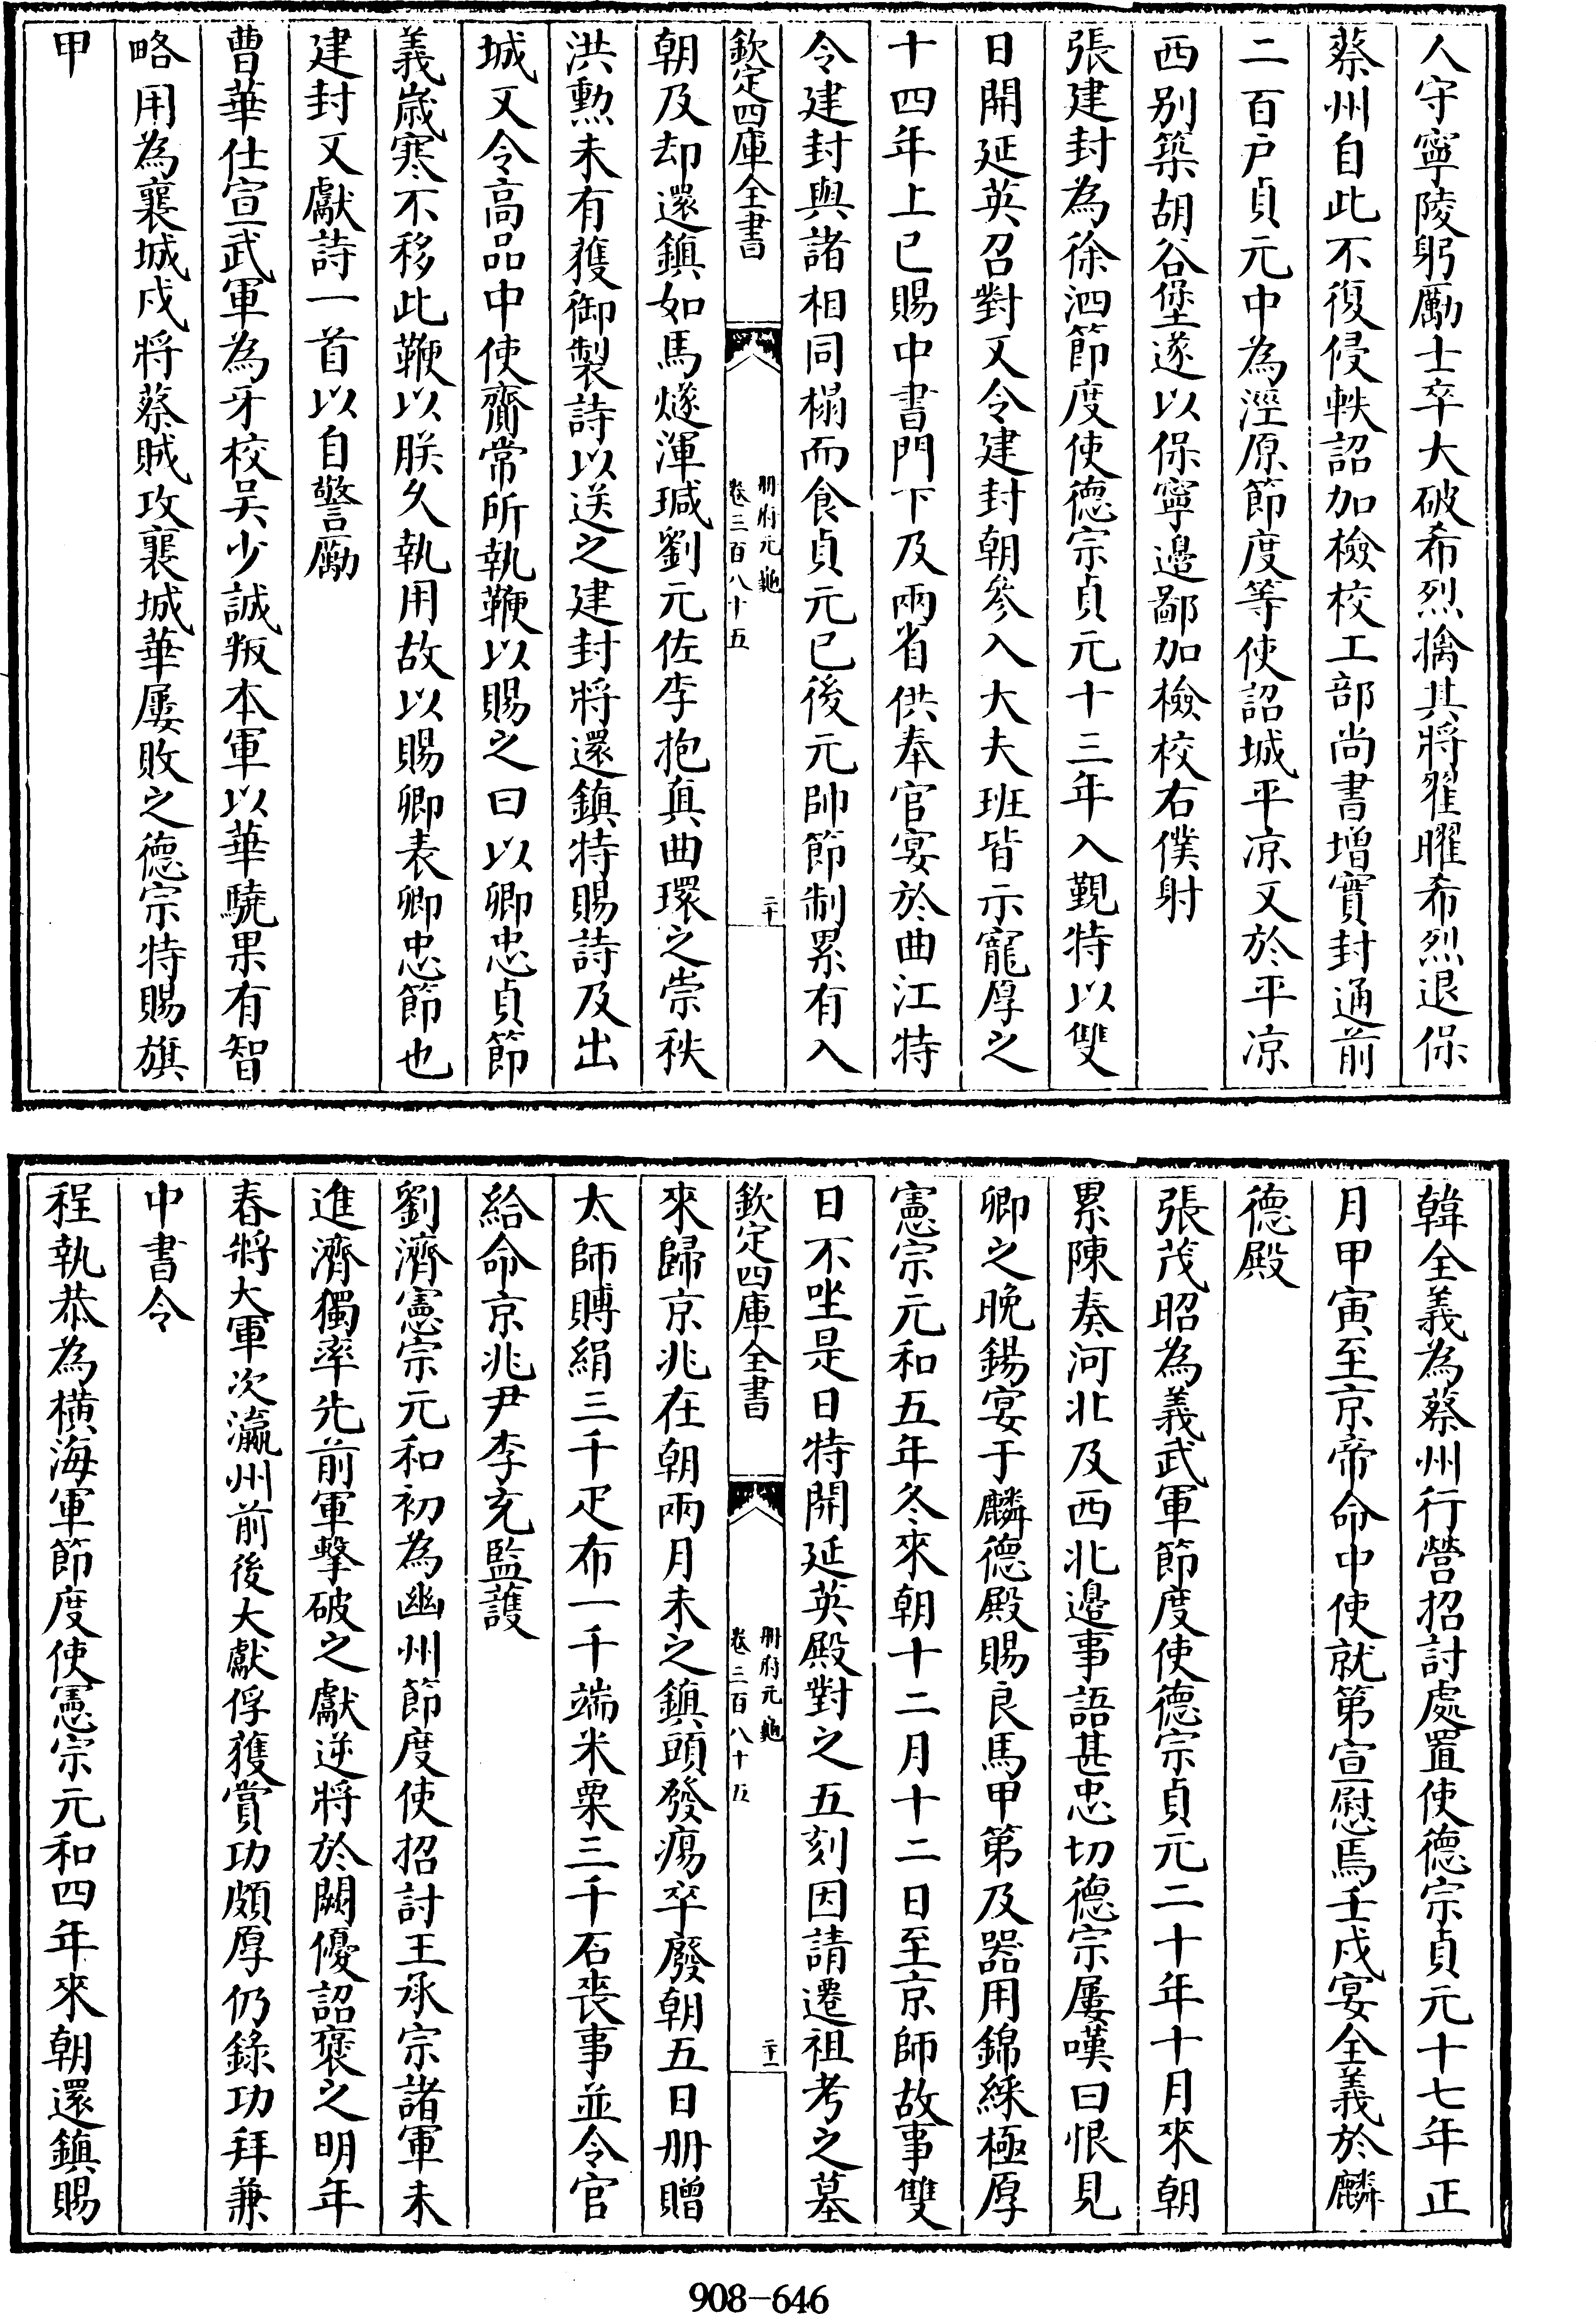 人守寧陵躬勵士卒大破希烈擒其將翟曜希烈退保
蔡州自此不復侵軼詔加檢校工部尚書增實封通前
二百户貞元中為涇原節度等使詔城平凉又於平凉
西别築胡谷堡遂以保寧邊鄙加檢校右僕射
張建封為徐泗節度使德宗貞元十三年入覲特以雙
日開延英召對又令建封朝參入大夫班皆示寵厚之
十四年上巳賜中書門下及兩省供奉官宴於曲江特
令建封與諸相同榻而食貞元已後元帥節制累有入
欽定四庫全書
册府元龜
卷三百八十五
二十
朝及却還鎮如馬燧渾瑊劉元佐李抱真曲環之崇秩
洪勲未有獲御製詩以送之建封將還鎮特賜詩及出
城又令高品中使齎常所執鞭以賜之曰以卿忠貞節
義歲寒不移此鞭以朕久執用故以賜卿表卿忠節也
建封又獻詩一首以自警勵
曹華仕宣武軍為牙校吴少誠叛本軍以華驍果有智
略用為襄城戍將蔡賊攻襄城華屢敗之德宗特賜旗
甲
韓全義為蔡州行營招討處置使德宗貞元十七年正
月甲寅至京帝命中使就第宣慰焉壬戌宴全義於麟
德殿
張茂昭為義武軍節度使德宗貞元二十年十月來朝
累陳奏河北及西北邊事語甚忠切德宗屢嘆曰恨見
卿之晚錫宴于麟德殿賜良馬甲第及器用錦綵極厚
憲宗元和五年冬來朝十二月十二日至京師故事雙
日不坐是日特開延英殿對之五刻因請遷祖考之墓
欽定四庫全書
册府元龜
卷三百八十五
二十一
來歸京兆在朝兩月未之鎮頭發瘍卒廢朝五日册贈
太師賻絹三千疋布一千端米粟三千石喪事並令官
給命京兆尹李充監護
劉濟憲宗元和初為幽州節度使招討王承宗諸軍未
進濟獨率先前軍擊破之獻逆將於闕優詔褒之明年
春將大軍次瀛州前後大獻俘獲賞功頗厚仍錄功拜兼
中書令
程執恭為横海軍節度使憲宗元和四年來朝還鎮賜
908-646